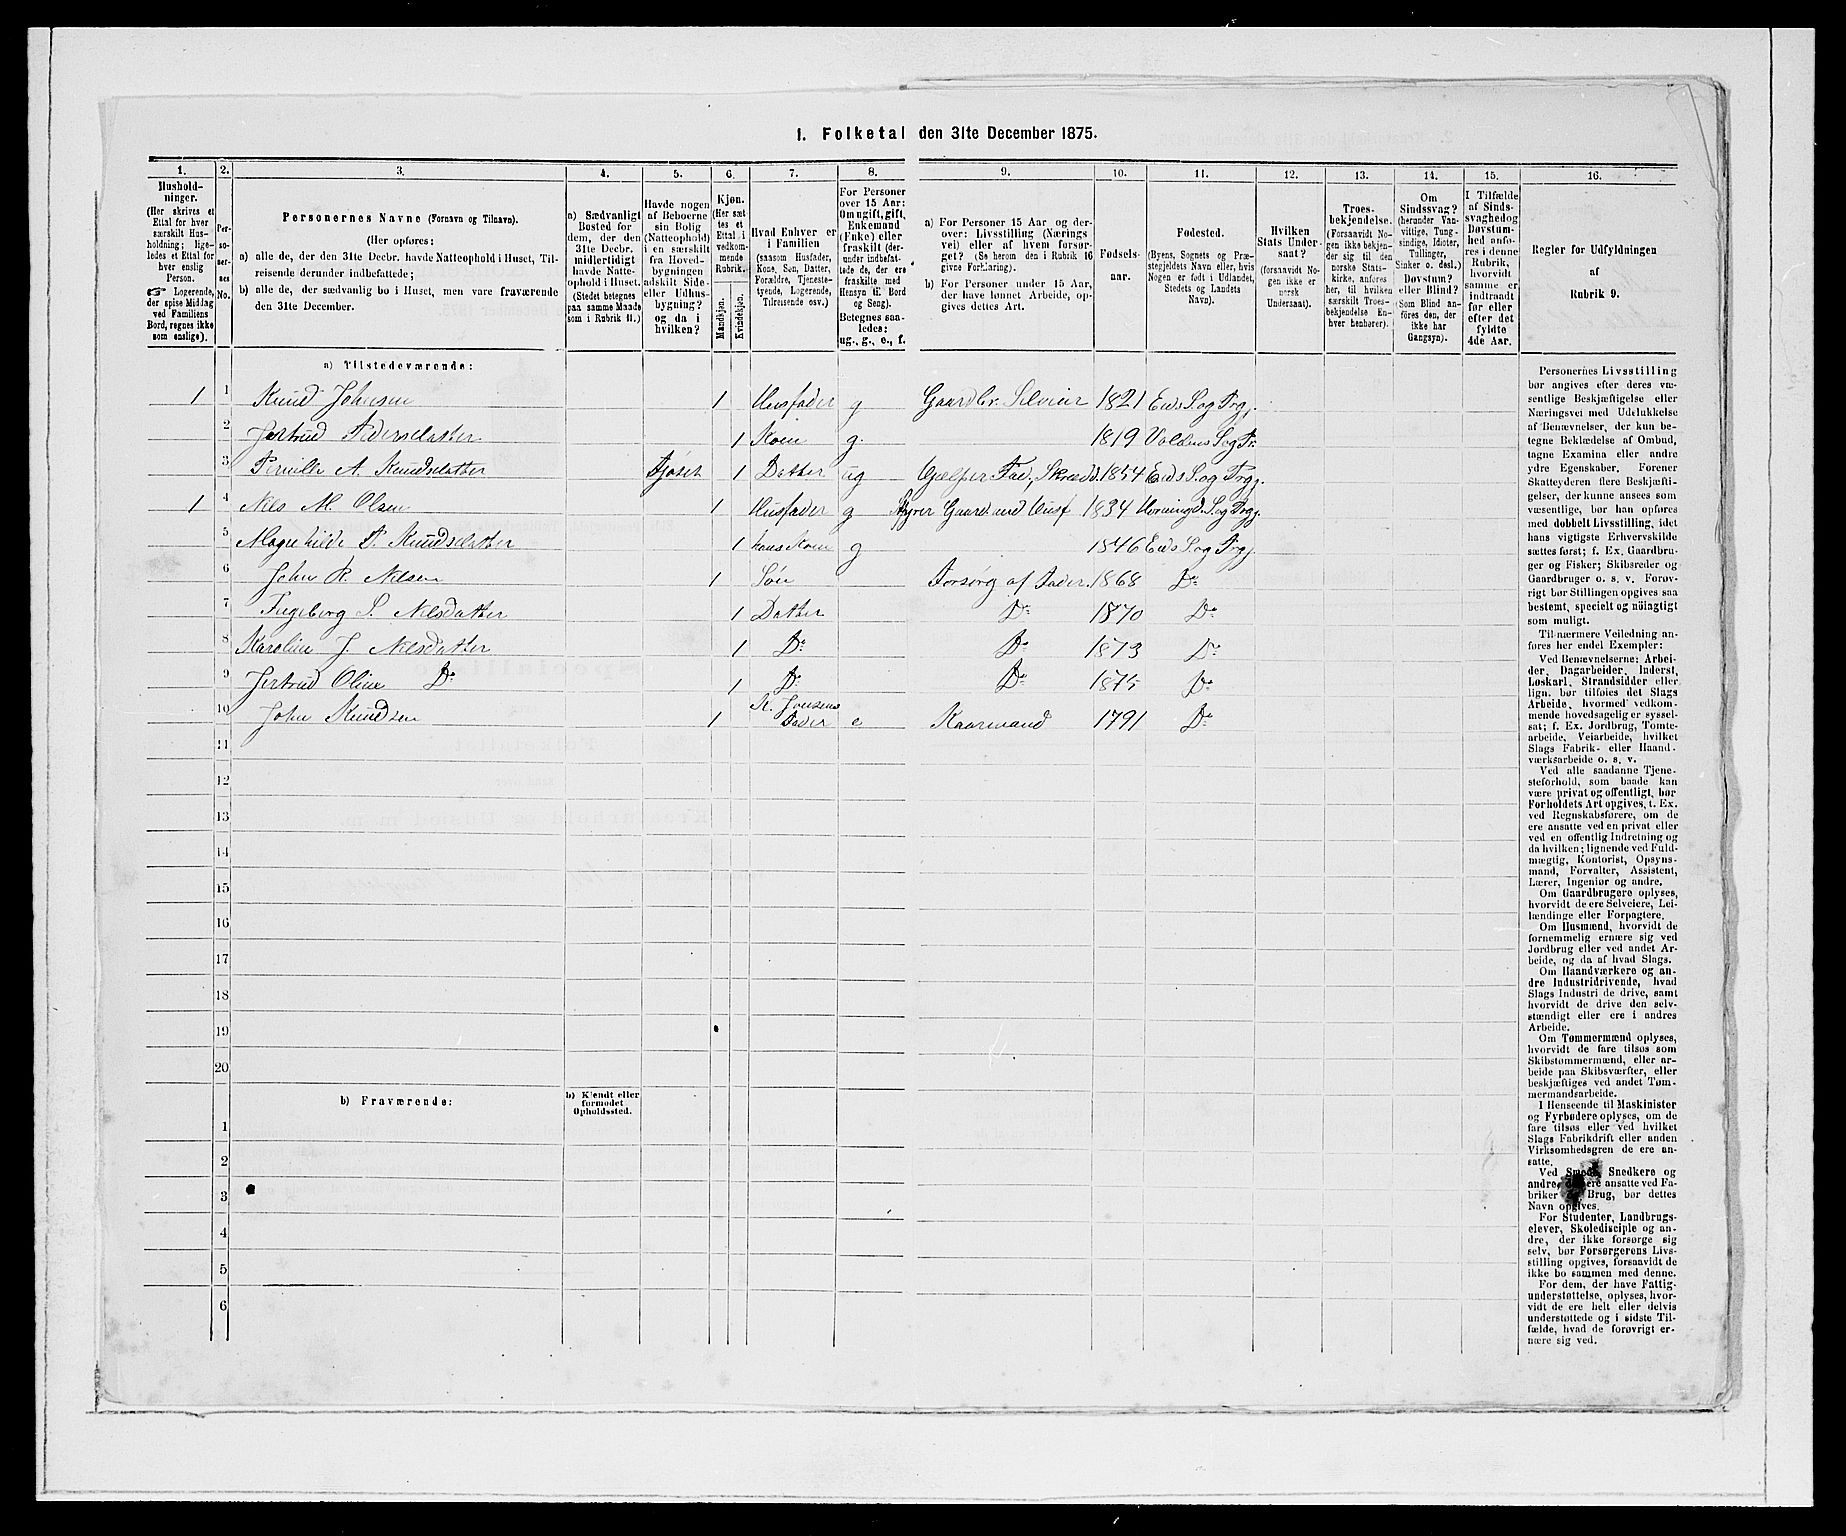 1. Folketal den 31te December 1875.
1. 2. 3. 4. 5. 6. 7. 8. 9. 10. 11. 12. 13. 14. 15. 16.
Hushold-
ninger.
(Her skrives et
Ettal for hver
særskilt Hus-
holdning; lige-
ledes et Ettal for
hver enslig
Person.
☞ Logerende,
der spise Middag
ved Familiens
Bord, regnes ikke
som enslige).
Per-
so-
ner-
nes
No.
Personernes Navne (Fornavn og Tilnavn).
(Her opføres:
a) alle de, der den 31te Decbr. havde Natteophold i Huset, Til-
reisende derunder indbefattede;
b) alle de, der sædvanlig bo i Huset, men vare fraværende
den 31te December.
a) Sædvanligt
Bosted for
dem, der den
31te Decbr.
midlertidigt
havde Natte-
ophold i Huset.
(Stedet betegnes
paa samme Maade
som i Rubrik 11.)
Havde nogen
af Beboerne
sin Bolig
(Natteophold)
i en særskilt
fra Hoved-
bygningen
adskilt Side-
eller Udhus-
bygning?
og da i
hvilken?
Kjøn.
(Her sæt-
tes et
Ettal i
vedkom-
mende
Rubrik.
Mandkjøn.
Kvindekjøn.
Hvad Enhver er
i Familien
(saasom Husfader,
Kone, Søn, Datter,
Forældre, Tjeneste-
tyende, Logerende,
Tilreisende osv.)
For Personer
over 15 Aar:
Om ugift, gift,
Enkemand
(Enke) eller
fraskilt (der-
under indbefat-
tede de, der ere
fraskilte med
Hensyn til Bord
og Seng).
Betegnes saa-
ledes:
ug., g., e., f.
a) For Personer 15 Aar og der-
over: Livsstilling (Nærings
vei) eller af hvem forsør-
get? (Se herom den i Rubrik 16
givne Forklaring).
b) For Personer under 15 Aar,
der have lønnet Arbeide, op-
gives dettes Art.
Fødsels-
aar.
Fødested.
(Byens, Sognets og Præ-
stegjeldets Navn eller, hvis
Nogen er født i Udlandet,
Stedets og Landets
Navn).
Hvilken
Stats Under-
saat?
(forsaavidt No-
gen ikke er
norsk
Undersaat).
Troes-
bekjendelse.
(Forsaavidt No-
gen ikke bekjen-
der sig til den
norske Stats-
kirke, anføres
her, til hvilken
særskilt Troes-
bekjendelse En-
hver henhører).
Om
Sindssvag?
(herunder Van-
vittige, Tung-
sindige, Idioter,
Tullinger,
Sinker o. desl.)
Døvstum?
eller Blind?
(Som Blind an-
føres den, der
ikke har
Gangsyn).
I Tilfælde
af Sinds-
svaghed og
Døvstum-
hed anfø-
res i denne
Rubrik,
hvorvidt
samme er
indtraadt
før eller
efter det
fyldte
4de Aar.
Regler for Udfyldningen
af
Rubrik 9.
a) Tilstedeværende:
1 1 Knud Johnsen 1 Husfader g Gaardbr. Selveier 1821 Eids S. og Prg.
2 Jertrud Pedersdatter 1 Kone g. 1819 Voldens S og Pr.
3 Pernille A. Knudsdatter Fjøset 1 Datter ug Hjelper Fad., Skrædd. 1854 Eids S. og Prg.
1 4 Nils M. Olsen 1 Husfader g Styrer Gaard. med Husf 1834 Horningd. S. og Prg.
5 Magnhilde P. Knudsdatter 1 hans Kone g 1846 Eids S. og Prg.
6 John R. Nilsen 1 Søn Forsørg af Fader. 1868 Do
7 Ingeborg S. Nilsdatter 1 Datter Do 1870 Do
8 Karoline J. Nilsdatter 1 Do Do 1873 Do
9 Jertrud Oline Do 1 Do Do 1875 Do
10 John Knudsen 1 K. Jonsens Fader e Kaarmand 1791 Do
11
12
13
14
15
16
17
18
19
20
b) Fraværende:
b) Kjendt eller
formodet
Opholdssted.
1
2
3
4
5
6
Personernes Livsstilling
bør angives efter deres væ-
sentlige Beskjæftigelse eller
Næringsvei med Udelukkelse
af Benævnelser, der kun be-
tegne Beklædelse af Ombud,
tagne Examina eller andre
ydre Egenskaber. Forener
Skatteyderen flere Beskjæfti-
gelser, der kunne ansees som
væsentlige, bør han opføres
med dobbelt Livsstilling, idet
hans vigtigste Erhvervskilde
sættes først; f. Ex. Gaardbru-
ger og Fisker; Skibsreder og
Gaardbruger o. s. v. Forøv-
rigt bør Stillingen opgives saa
bestemt, specielt og nöiagtigt
som muligt.
Til nærmere Veiledning an-
føres her endel Exempler:
Ved Benævnelserne: Arbei-
der, Dagarbeider, Inderst,
Løskarl, Strandsidder eller
lign. bør tilføies det Slags
Arbeide, hvormed vedkom-
mende hovedsagelig er syssel-
sat; f. Ex. Jordbrug, Tomte-
arbeide, Veiarbeide, hvilket
Slags Fabrik- eller Haand-
værksarbeide o. s. v.
Ved alle saadanne Tjene-
steforhold, som baade kan
være privat og offentligt, bør
Forholdets Art opgives, t. Ex.
ved Regnskabsførere, om de
ere ansatte ved en privat eller
ved en offentlig Indretning og
da hvilken; lignende ved Fuld-
mægtig, Kontorist, Opsyns-
mand, Forvalter, Assistent,
Lærer, Ingeniør og andre.
Om Gaardbrugere oplyses,
hvorvidt de ere Selveiere, Lei-
lændinge eller Forpagtere.
Om Husmænd, hvorvidt de
fornemmelig ernære sig ved
Jordbrug eller ved andet Ar-
beide, og da af hvad Slags.
Om Haandværkere og an-
dre Industridrivende, hvad
Slags Industri de drive, samt
hvorvidt de drive den selv-
stændigt eller ere i andres
Arbeide.
Om Tømmermænd oplyses,
hvorvidt de fare tilsøs som
Skibstømmermænd, eller ar-
beide paa Skibsværfter, eller
beskjæftiges ved andet Tøm-
mermandsarbeide.
I Henseende til Maskinister
og Fyrbødere oplyses, om de
fare tilsøs eller ved hvilket
Slags Fabrikdrift eller anden
Virksomhedsgren de ere an-
satte.
Ved Smede, Snedkere og
andre, de ere ansatte ved Fa-
briker Brug, bør dettes
Navn opgives.
For Studenter, Landbrugs-
elever, Skoledisciple og an-
dre, der ikke forsørge sig
selv, bør Forsørgerens Livs-
stilling opgives, forsaavidt de
ikke bo sammen med denne.
For dem, der have Fattig-
understøttelse, oplyses, hvor-
vidt de ere helt eller delvis
understøttede og i sidste Til-
fælde, hvad de forøvrigt er-
nære sig ved.